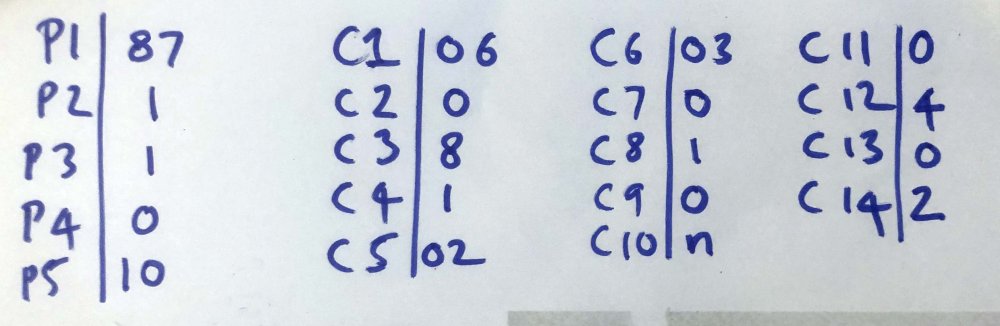 P1 | 87
P2 | 1
P3 | 1
P4 | 0
P5 | 10
C1 | 06
C2 | 0
C3 | 8
C4 | 1
C5 | 02
C6 | 03
C7 | 0
C8 | 1
C9 | 0
C10 | n
C11 | 0
C12 | 4
C13 | 0
C14 | 2